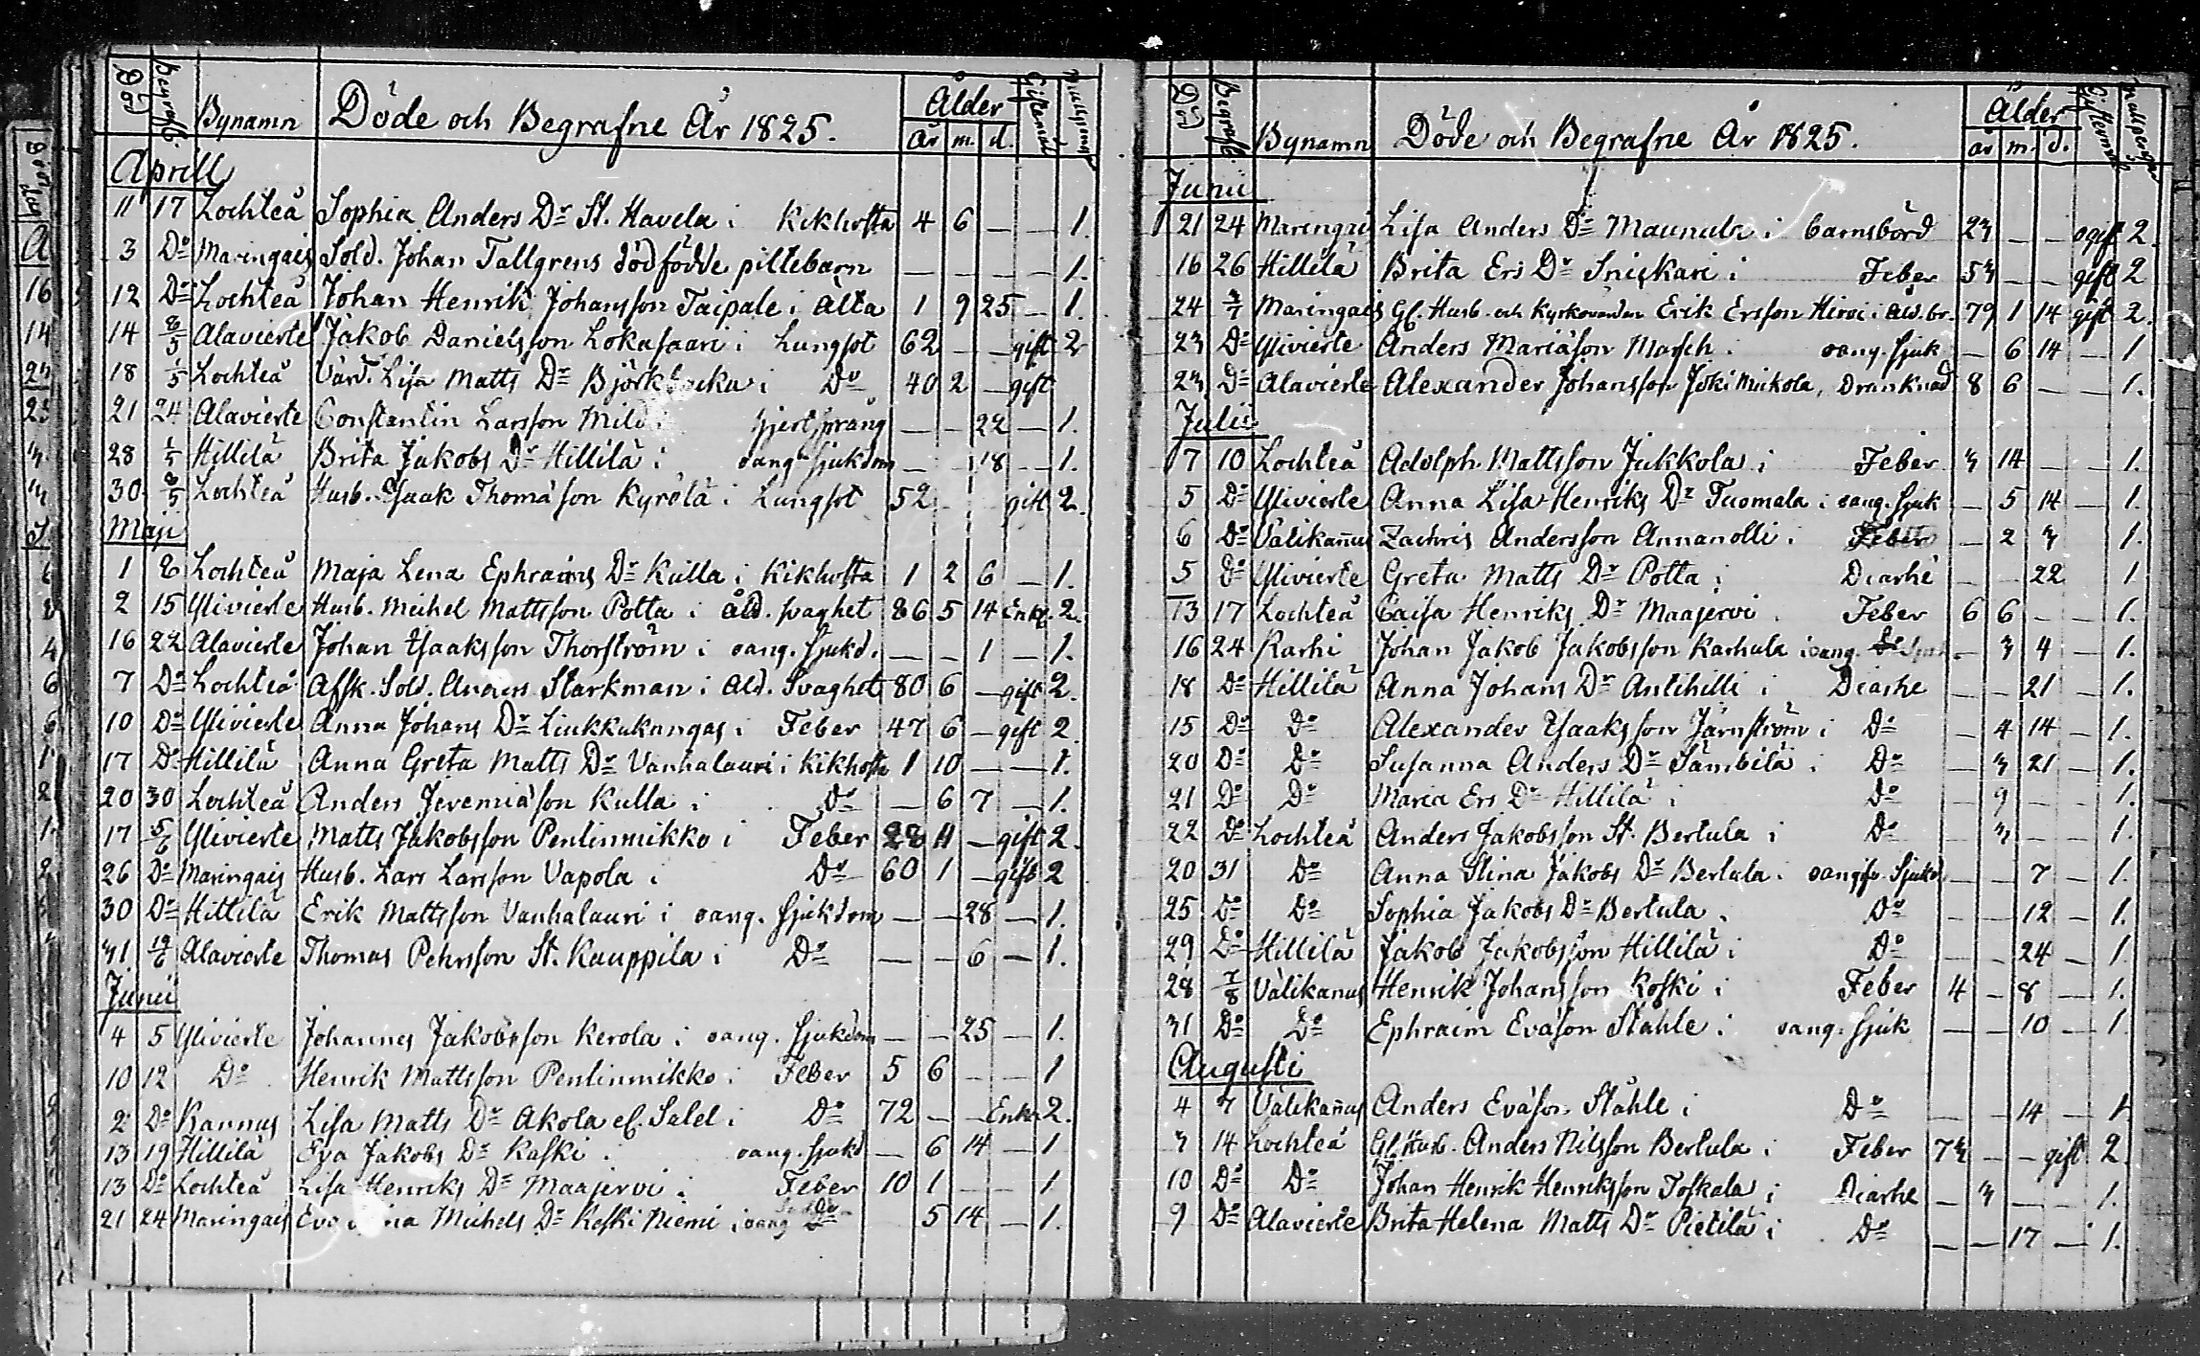 Död Begrafn. Bynamn Döde och Begrafne År 1825. Ålder Giftermål
år m. d.
Aprill
11 17 Lochteå Sophia Anders Dr St. Havela i Kikhosta 4 6 — — 1.
3 Do Maringais Sold. Johan Tallgrens dödfödde piltebarn — — — — 1.
12 Do Lochteå Johan Henrik Johansson Taipale i Älta 1 9 25 — 1.
14 8/5 Alavierte Jakob Danielsson Lokasaari i Lungsot 62 — — gift 2
18 1/5 Lochteå Värd. Lisa Matts Dr Björkbacka i Do 40 2 — gift
21 24 Alavierte Constantin Larsson Mild i hjertsprång — — 22 — 1.
28 1/5 Hillilä Brita Jakobs Dr Hillilä i oang. sjukdom — — 18 — 1.
30 8/5 Lochteå Husb. Isaak Thomasson Kyrölä i Lungsot 52 gift 2.
Maji
1 8 Lochteå Maja Lena Ephraims Dr Kulla i Kikhosta 1 2 6 — 1.
2 15 Ylivierte Husb. Michel Mattsson Potta i åld. svaghet 86 5 14 Enkl. 2.
16 22 Alavierte Johan Isaaksson Thorström i oang. sjukd. — — 1 — 1.
7 Do Lochteå Afsk. Sold. Anders Starkman i åld. Svaghet 80 6 — gift 2.
10 Do Ylivierte Anna Johans Dr Liukkukangas i Feber 47 6 — gift 2
17 Do Hillilä Anna Greta Matts Dr Vanhalauri i Kikhosta 1 10 — — 1.
20 30 Lochteå Anders Jeremiäson Kulla i Do — 6 7 — 1.
17 5/6 Ylivierte Matts Jakobsson Pentinmikko i Feber 28 11 — gift 2.
26 Do Maringais Husb. Lars Larsson Vapola i Do 60 1 — gift 2
30 Do Hillilä Erik Mattsson Vanhalauri i oang. Sjukdom — — 28 — 1.
31 12/6 Alavierte Thomas Pehrsson St. Kauppila i Do — — 6 — 1.
Junii
4 5 Ylivierte Johannes Jakobsson Kerola i oang. sjukdom — — 25 — 1.
10 12 Do Henrik Mattsson Pentinmikko i Feber 5 6 — — 1
2 Do Kannus Lisa Matts Dr Akola el. Salel i Do 72 — — Enka 2.
13 19 Hillilä Eva Jakobs Dr Kaski i oang. sjukd — 6 14 — 1
13 Do Lochteå Lisa Henriks Dr Maajervi i Feber 10 1 — — 1
21 24 Maringais Eva Michels Dr Koski Niemi i oang 5 14 — 1.
Död Begrafn. Bynamn Döde och Begrafne År 1825. Ålder
år m. d.
Junii
21 24 Maringais Lisa Anders Dr Maunula i barnsbörd 23 — — ogift 2.
16 26 Hillilä Brita Ers Dr Snickari i Feber 53 — — gift 2
24 3/7 Maringais Gl. Husb. och Kyrkovärden Erik Ersson Hirvi i åld. br. 79 1 14 gift 2.
23 Do Ylivierte Anders Mariäson Marsch i oang. sjuk — 6 14 — 1
23 Do Alavierte Alexander Johansson Joki Mickola, Drunknad 8 6 — — 1.
Julii
7 10 Lochteå Adolph Mattsson Jukkola i Feber 3 14 — — 1.
5 Do Ylivierte Anna Lisa Henriks Dr Tuomala i oang. sjuk — 5 14 — 1.
6 Do Välikannus Zachris Andersson Annanolli i Feber — 2 3 1.
5 Do Ylivierte Greta Matts Dr Potta i Diarhé — — 22 1
13 17 Lochteå Caisa Henriks Dr Maajervi Feber 6 6 — — 1.
16 24 Karhi Johan Jakob Jakobsson Karhula i oang. — 3 4 — 1.
18 Do Hillilä Anna Johans Dr Antihilli i Diarhe — — 21 — 1.
15 Do Do Alexander Isaaksson Järnström i Do — 4 14 — 1.
20 Do Do Susanna Anders Dr Sämbilä i Do — 3 21 — 1.
21 Do Do Maria Ers Dr Hillilä i Do — 9 — — 1.
22 Do Lochteå Anders Jakobsson St. Bertula i Do — 3 — — 1.
20 31 Do Anna Stina Jakobs Dr Bertula i oangifv. Sjukd. — — 7 — 1.
25 Do Do Sophia Jakobs Dr Bertula i Do — — 12 — 1.
29 Do Hillilä Jakob Jakobsson Hillilä i Do — — 24 — 1
28 7/8 Välikanus Henrik Johansson Koski i Feber 4 — 8 — 1.
31 Do Do Ephraim Eväson Ståhle i oang. Sjuk — — 10 — 1.
Augusti
4 7 Välikañus Anders Eväson Ståhle i Do — — 14 — 1
3 14 Lochteå Gl. Husb. Anders Nilsson Bertula i Feber 73 — — gift 2
10 Do Do Johan Henrik Henriksson Toskala i Diarhe — 3 — — 1.
9 Do Alavierte Brita Helena Matts Dr Pietilä i Do — — 17 — 1.